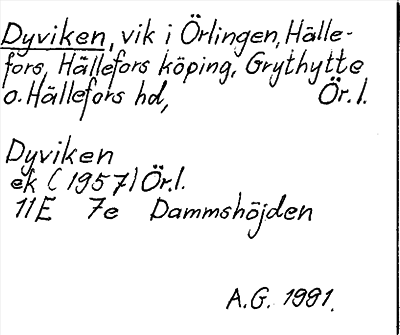 Dyviken, vik i Örlingen, Hälle-
fors, Hällefors köping, Grythytte
o. Hällefors hd, Ör. l.
Dyviken
ek (1957) Ör. l.
11E 7e Dammshöjden
A.G. 1991.